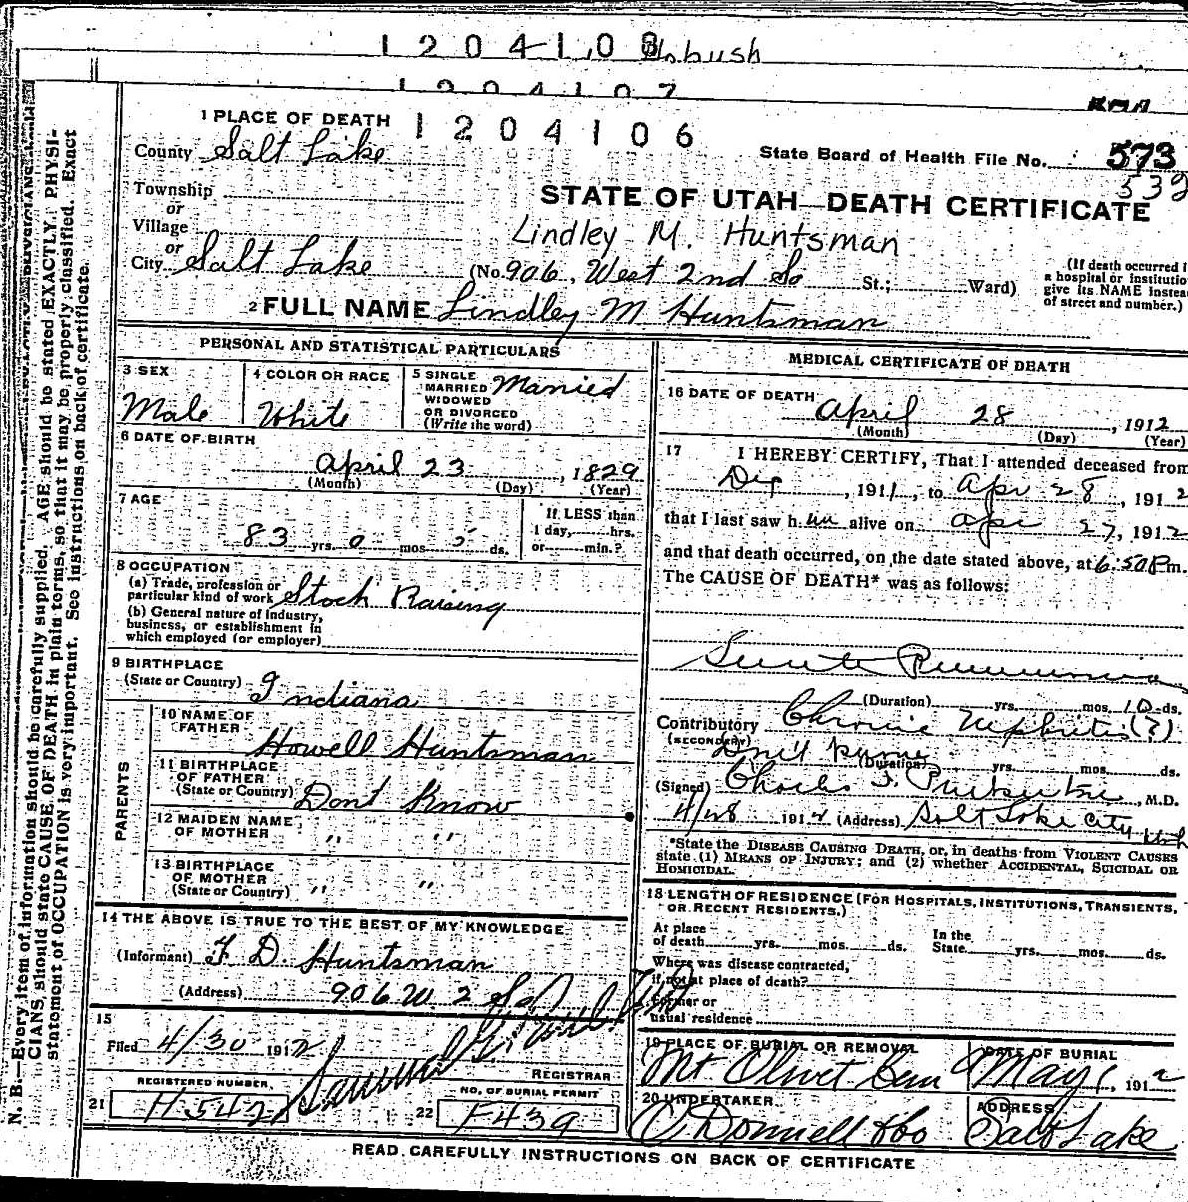 1204108
bush
1204107
1 PLACE OF DEATH 1204106
County Salt Lake
State Board of Health File No. 573
532
Township
or
Village
or
City Salt Lake
STATE OF UTAH—DEATH CERTIFICATE
Lindley M. Huntsman
(No. 906, West 2nd So St.; Ward)
(If death occurred i
a hospital or institutio
give its NAME instea
of street and number.)
2 FULL NAME Lindley M Huntsman
PERSONAL AND STATISTICAL PARTICULARS
3 SEX
Male
4 COLOR OR RACE
White
5 SINGLE
MARRIED
WIDOWED
OR DIVORCED
(Write the word)
Married
6 DATE OF BIRTH
April 23, 1829
(Month) (Day) (Year)
7 AGE
83 yrs. 0 mos 5 ds.
If LESS than
1 day, hrs.
or min.?
8 OCCUPATION
(a) Trade, profession or
particular kind of work Stock Raising
(b) General nature of Industry,
business, or establishment in
which employed (or employer)
9 BIRTHPLACE
(State or Country) Indiana
PARENTS
10 NAME OF
FATHER Howell Huntsman
11 BIRTHPLACE
OF FATHER
(State or Country) Dont Know
12 MAIDEN NAME
OF MOTHER " "
13 BIRTHPLACE
OF MOTHER
(State or Country) " "
14 THE ABOVE IS TRUE TO THE BEST OF MY KNOWLEDGE
(Informant) F D. Huntsman
(Address) 906 W. 2 So
15
Filed 4/30 1912
REGISTRAR
REGISTERED NUMBER
21 H542
NO. OF BURIAL PERMIT
22 F439
MEDICAL CERTIFICATE OF DEATH
16 DATE OF DEATH
April 28, 1912
(Month) (Day) (Year)
17 I HEREBY CERTIFY, That I attended deceased from
, 1911, to Apr 28, 1912
that I last saw him alive on Apr 27, 1912
and that death occurred, on the date stated above, at 6:50 P m.
The CAUSE OF DEATH* was as follows:
(Duration) yrs. mos. 10 ds.
Contributory Chronic Nephritis (?)
(SECONDARY) Don't Know
(Duration) yrs. mos. ds.
(Signed) Charles F. , M.D.
4/28 1912 (Address) Salt Lake City Utah
*State the DISEASE CAUSING DEATH, or, in deaths from VIOLENT CAUSES
state (1) MEANS OF INJURY; and (2) whether ACCIDENTAL, SUICIDAL OR
HOMICIDAL.
18 LENGTH OF RESIDENCE (FOR HOSPITALS, INSTITUTIONS, TRANSIENTS,
OR RECENT RESIDENTS.)
At place
of death yrs. mos. ds.
In the
State yrs. mos. ds.
Where was disease contracted,
if not at place of death?
Former or
usual residence
19 PLACE OF BURIAL OR REMOVAL
Mt Olivet Cem
DATE OF BURIAL
May 1, 1912
20 UNDERTAKER
O'Donnell &Co
ADDRESS
Salt Lake
READ CAREFULLY INSTRUCTIONS ON BACK OF CERTIFICATE
N. B.—Every item of information should be carefully supplied. AGE should be stated EXACTLY. PHYSI-
CIANS should state CAUSE OF DEATH in plain terms, so that it may be properly classified. Exact
statement of OCCUPATION is very important. See instructions on back of certificate.